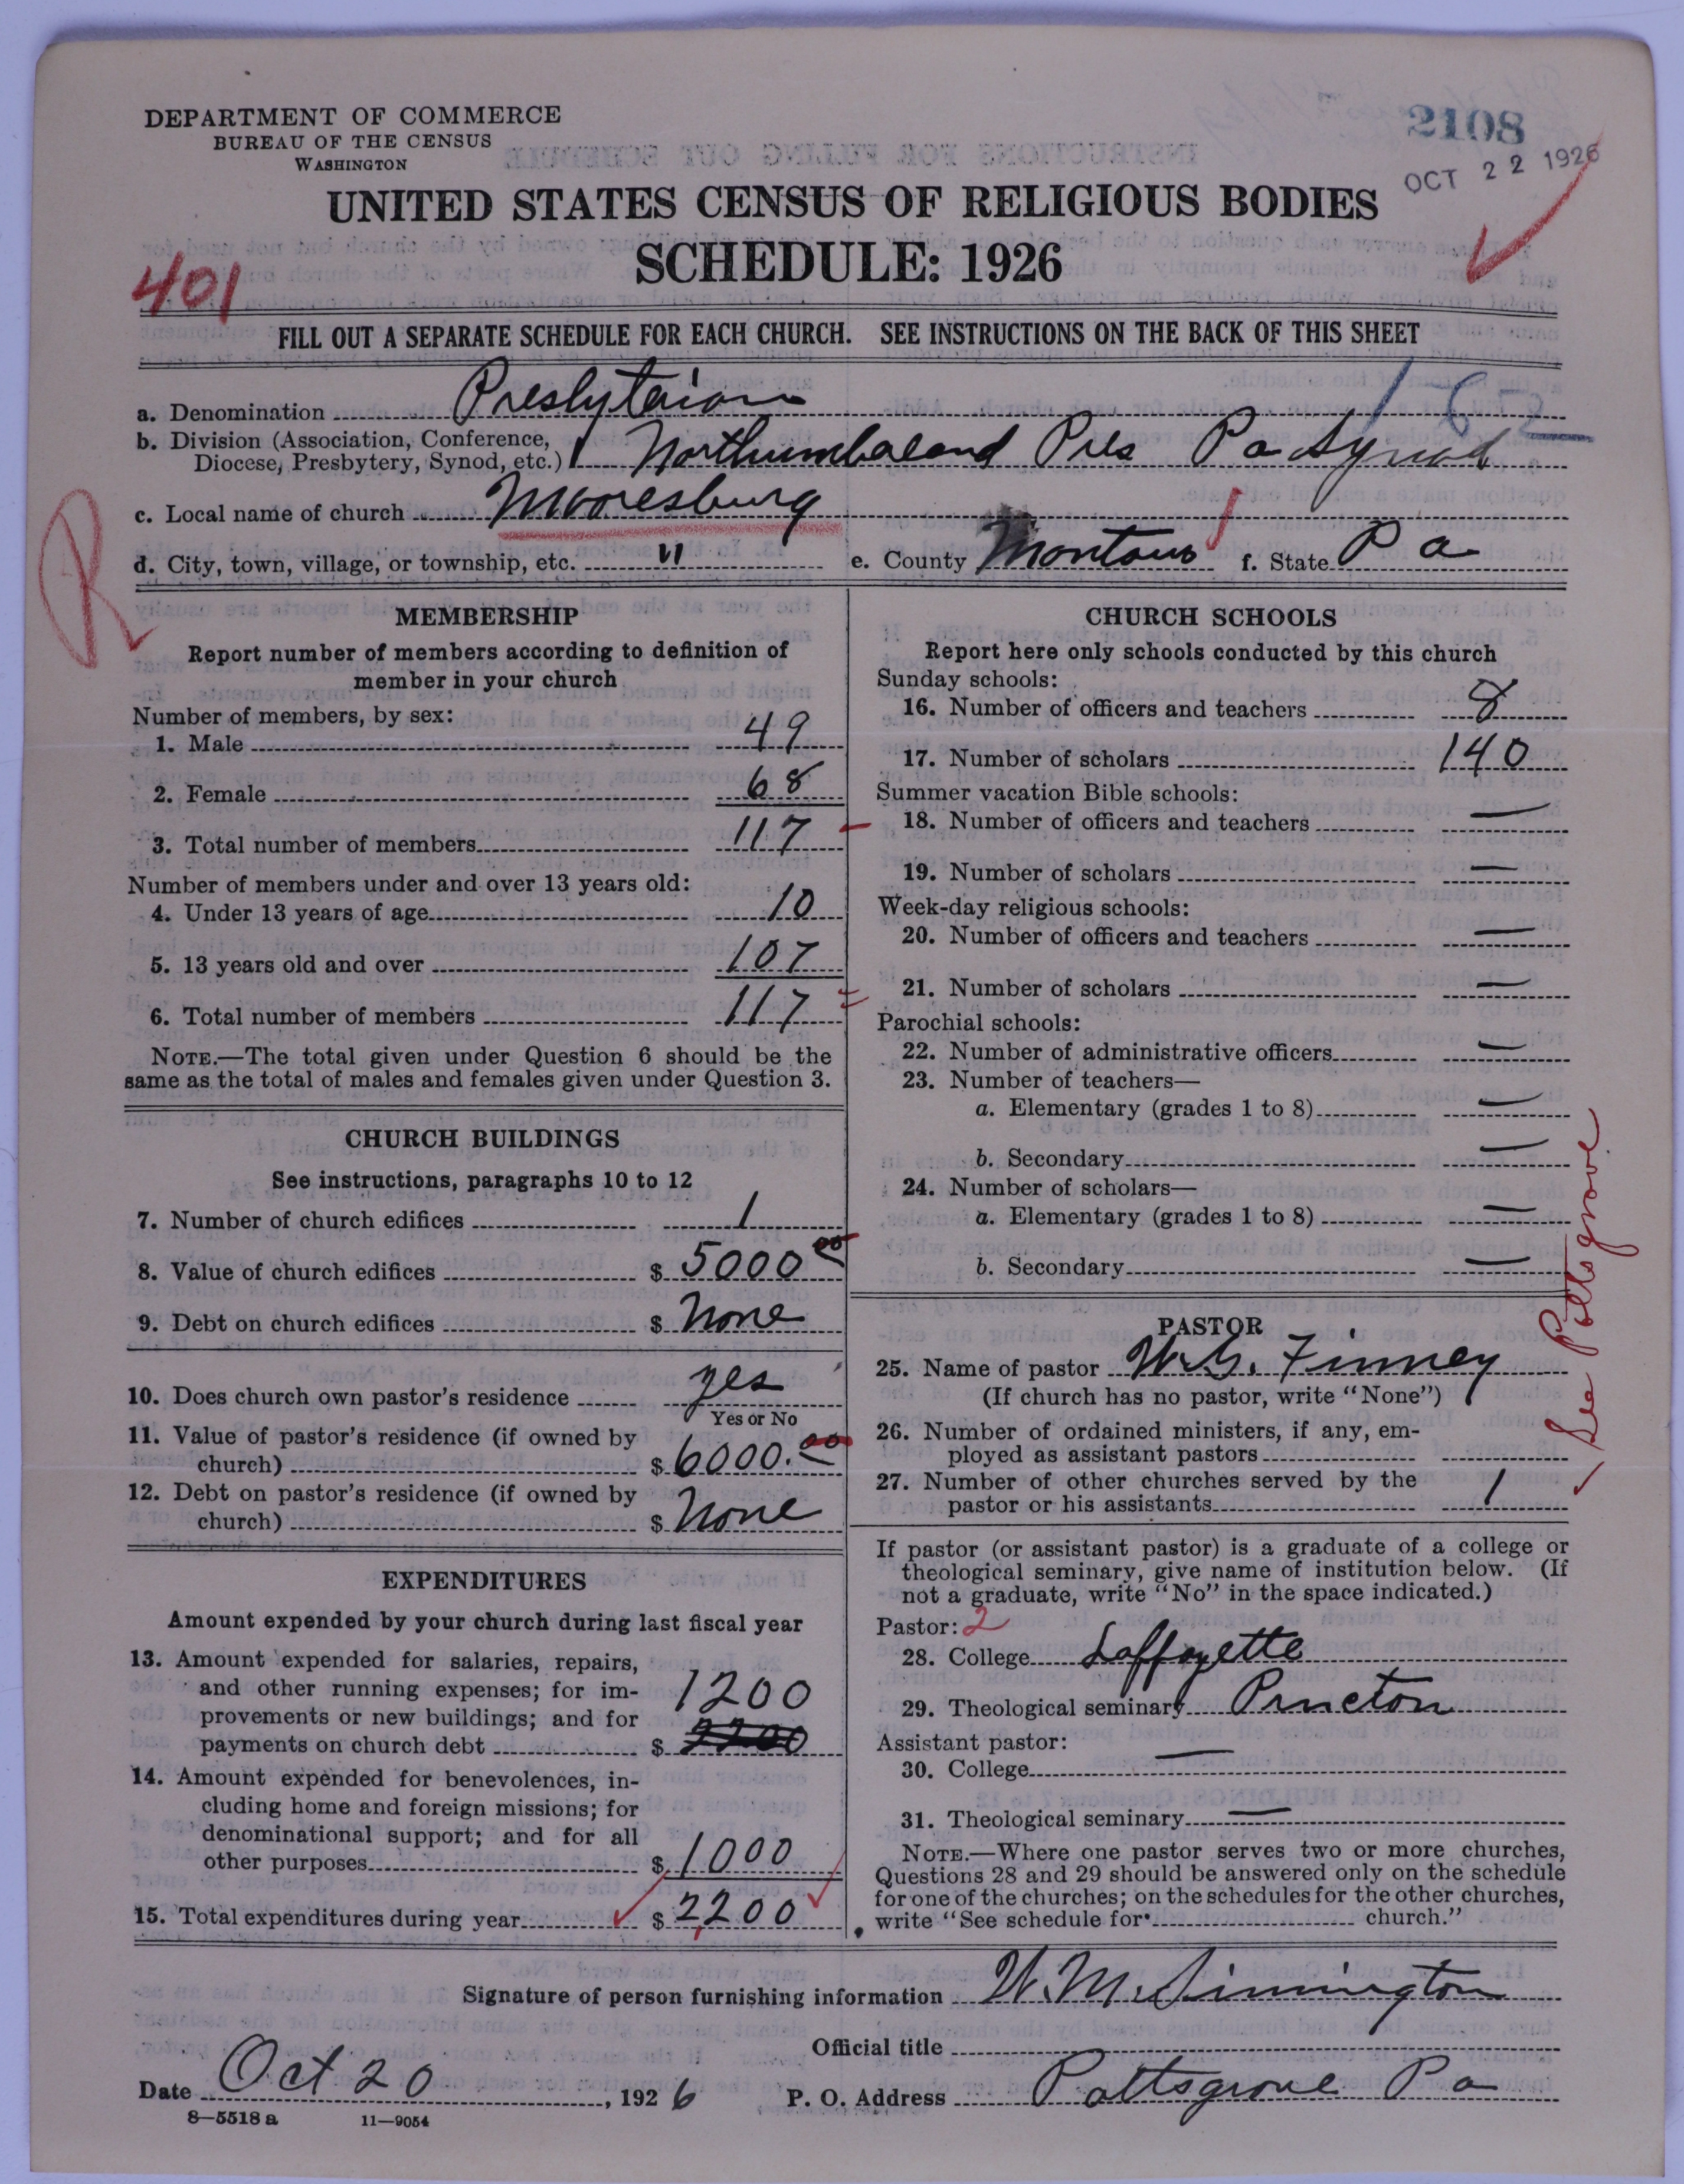 DEPARTMENT OF COMMERCE
BUREAU OF THE CENSUS
WASHINGTON
2108
OCT 22 1926
UNITED STATES CENSUS OF RELIGIOUS BODIES
SCHEDULE: 1926
401
FILL OUT A SEPARATE SCHEDULE FOR EACH CHURCH. SEE INSTRUCTIONS ON THE BACK OF THIS SHEET
a. Denomination Presbyterian
b. Division (Association, Conference, Diocese, Presbytery, Synod, etc.) Northumberland Pres Pa Synod
c. Local name of church Mooresburg
d. City, town, village, or township, etc. " e. County Montour f. State Pa
R
MEMBERSHIP
Report number of members according to definition of
member in your church
Number of members, by sex:
1. Male 49
2. Female 68
3. Total number of members 117
Number of members under and over 13 years old:
4. Under 13 years of age 10
5. 13 years old and over 107
6. Total number of members 117
NOTE.—The total given under Question 6 should be the
same as the total of males and females given under Question 3.
CHURCH BUILDINGS
See instructions, paragraphs 10 to 12
7. Number of church edifices 1
8. Value of church edifices $ 5000 00
9. Debt on church edifices $ None
10. Does church own pastor's residence yes
Yes or No
11. Value of pastor's residence (if owned by
church) $ 6000.00
12. Debt on pastor's residence (if owned by
church) $ None
EXPENDITURES
Amount expended by your church during last fiscal year
13. Amount expended for salaries, repairs,
and other running expenses; for im-
provements or new buildings; and for 1200
payments on church debt $ 2200
14. Amount expended for benevolences, in-
cluding home and foreign missions; for
denominational support; and for all
other purposes $ 1000
15. Total expenditures during year $ 2,200
CHURCH SCHOOLS
Report here only schools conducted by this church
Sunday schools:
16. Number of officers and teachers 8
17. Number of scholars 140
Summer vacation Bible schools:
18. Number of officers and teachers —
19. Number of scholars —
Week-day religious schools:
20. Number of officers and teachers —
21. Number of scholars —
Parochial schools:
22. Number of administrative officers —
23. Number of teachers—
a. Elementary (grades 1 to 8) —
b. Secondary —
24. Number of scholars—
a. Elementary (grades 1 to 8) —
b. Secondary —
PASTOR
25. Name of pastor W. G. Finney
(If church has no pastor, write "None")
26. Number of ordained ministers, if any, em-
ployed as assistant pastors
27. Number of other churches served by the
pastor or his assistants 1
See Pottsgrove
If pastor (or assistant pastor) is a graduate of a college or
theological seminary, give name of institution below. (If
not a graduate, write "No" in the space indicated.)
Pastor: 2
28. College Laffayette
29. Theological seminary Princton
Assistant pastor:
30. College —
31. Theological seminary —
NOTE.—Where one pastor serves two or more churches,
Questions 28 and 29 should be answered only on the schedule
for one of the churches; on the schedules for the other churches,
write "See schedule for church."
Signature of person furnishing information W. M. Simington
Official title
Date Oct 20, 1926 P. O. Address Pottsgrove Pa
8—5518 a 11—9054